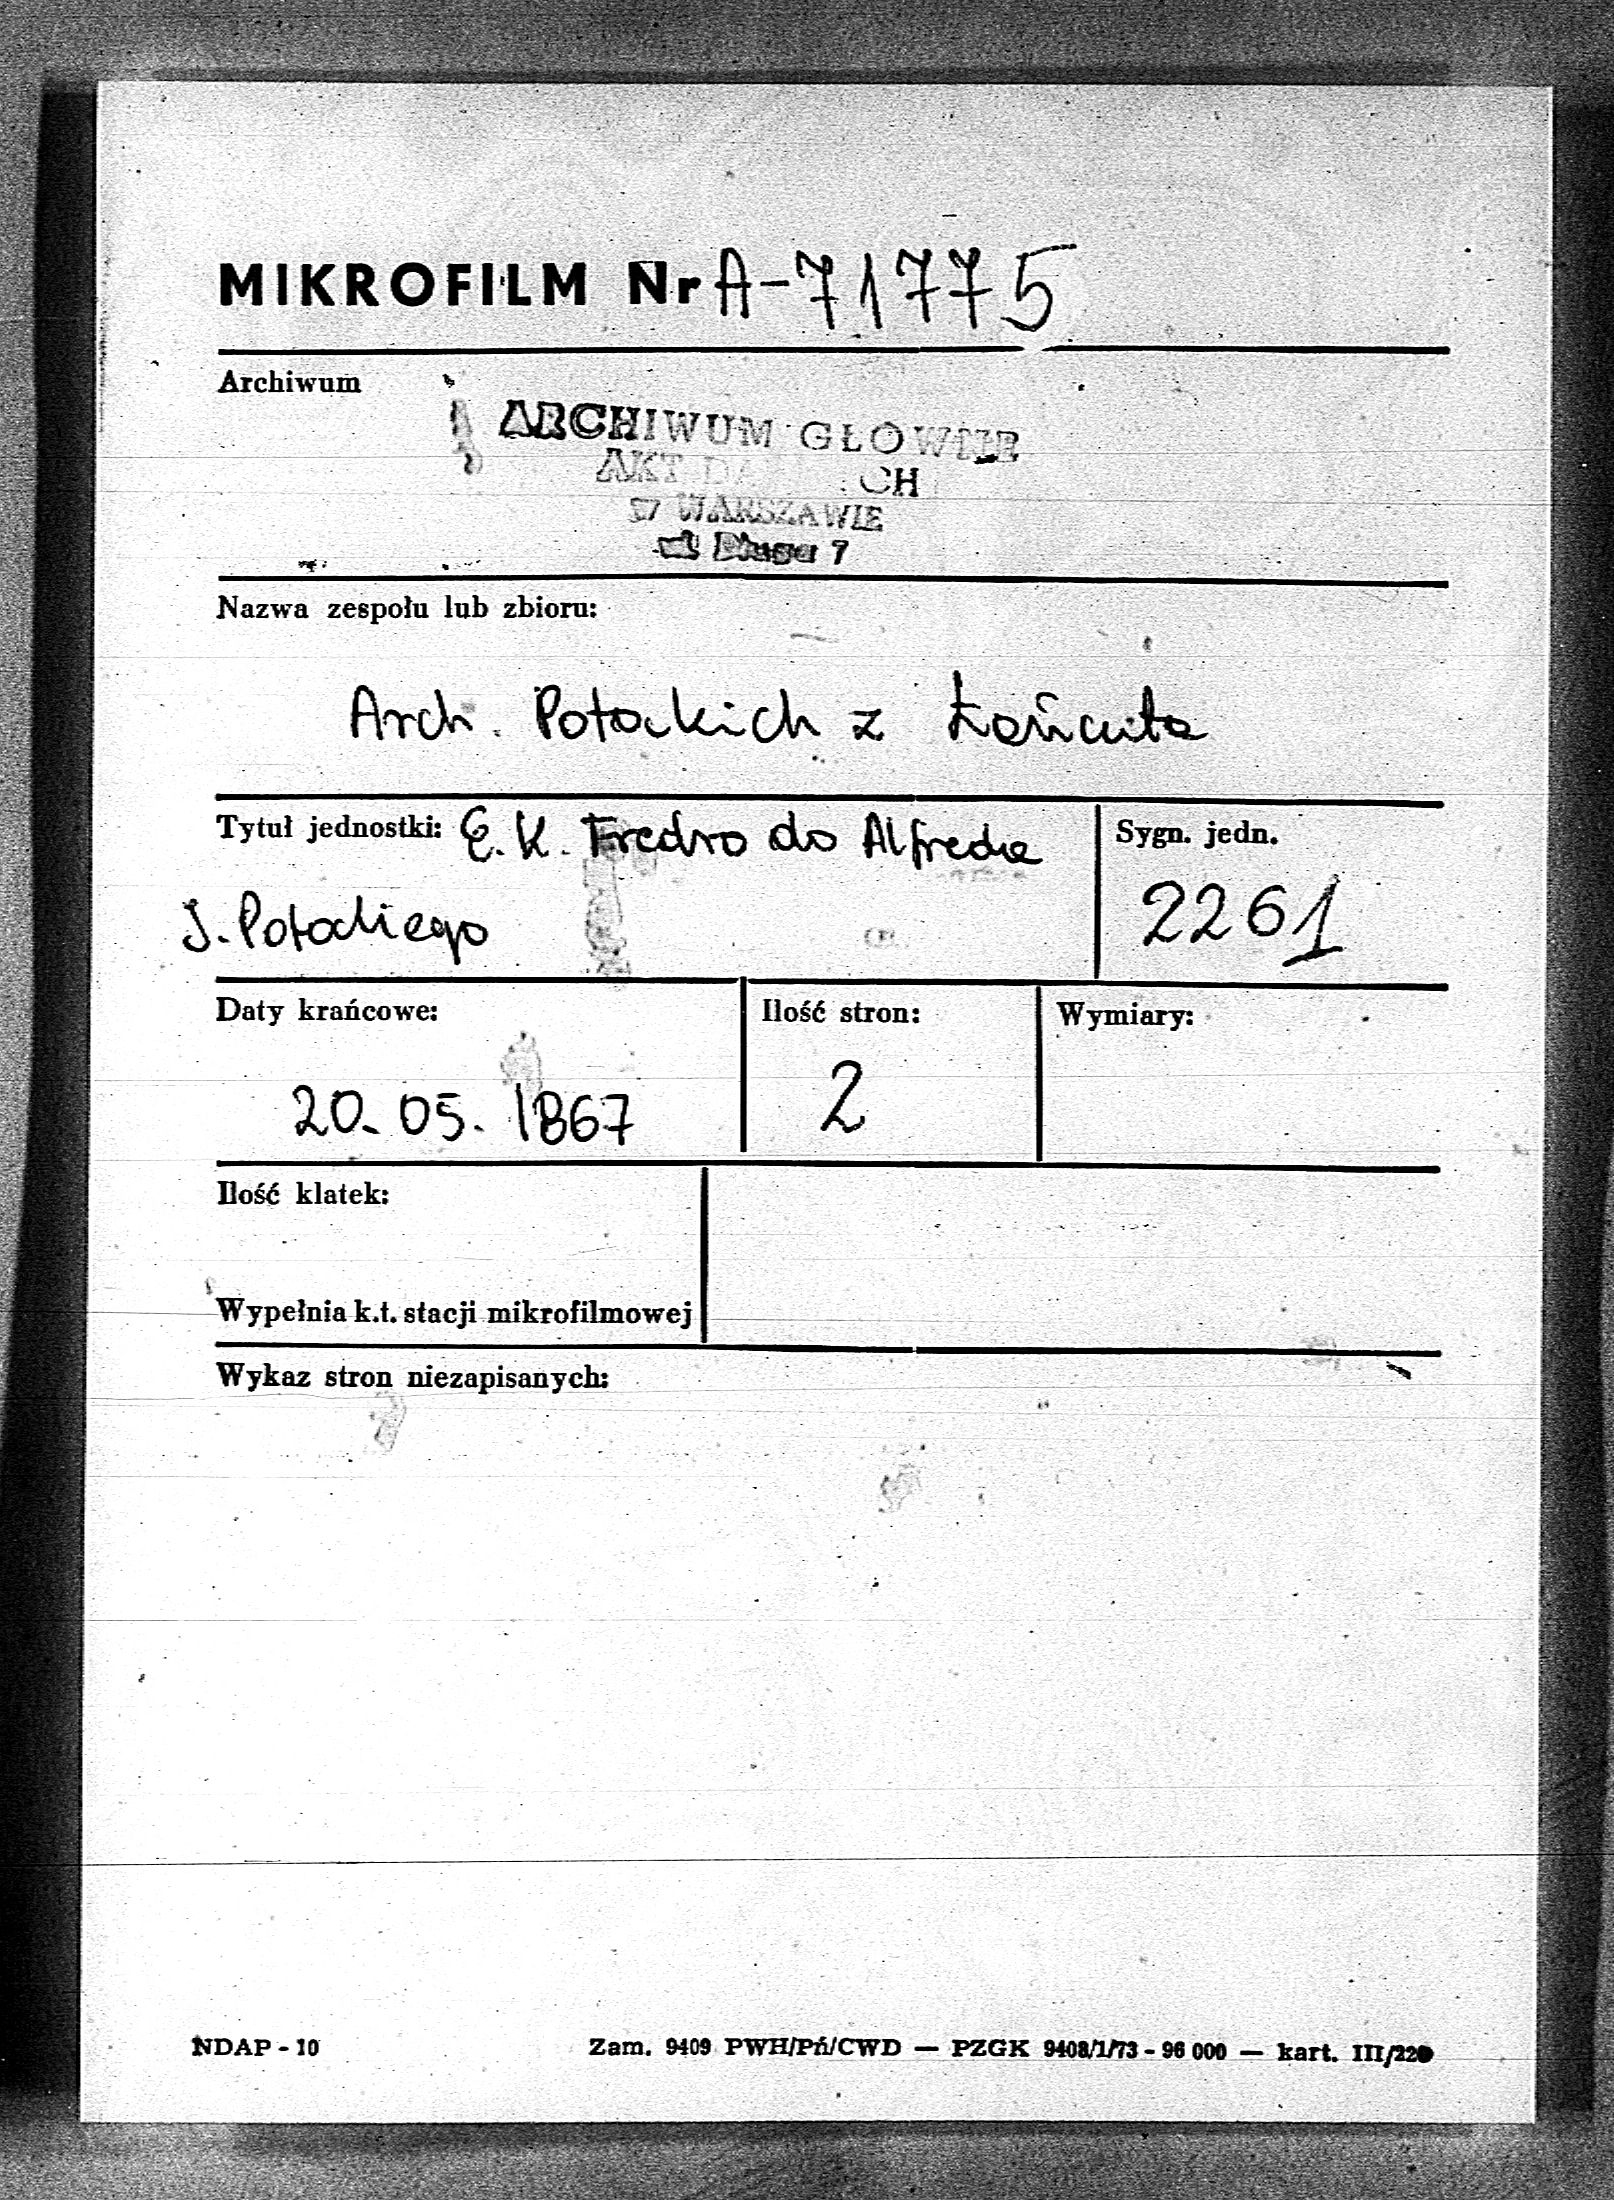 MIKROFILM Nr A-71775
Archiwum
ARCHIWUM GŁÓWNE
AKT DA CH
W WARSZAWIE
ul. Długa 7
Nazwa zespołu lub zbioru:
Arch. Potockich z Łańcuta
Tytuł jednostki: E.K. Fredro do Alfreda
J. Potockiego
Sygn. jedn.
2261
Daty krańcowe:
20.05.1867
Ilość stron:
2
Wymiary:
Ilość klatek:
Wypełnia k.t. stacji mikrofilmowej
Wykaz stron niezapisanych:
NDAP - 10
Zam. 9409 PWH/Pń/CWD — PZGK 9408/1/73 - 96 000 — kart. III/220